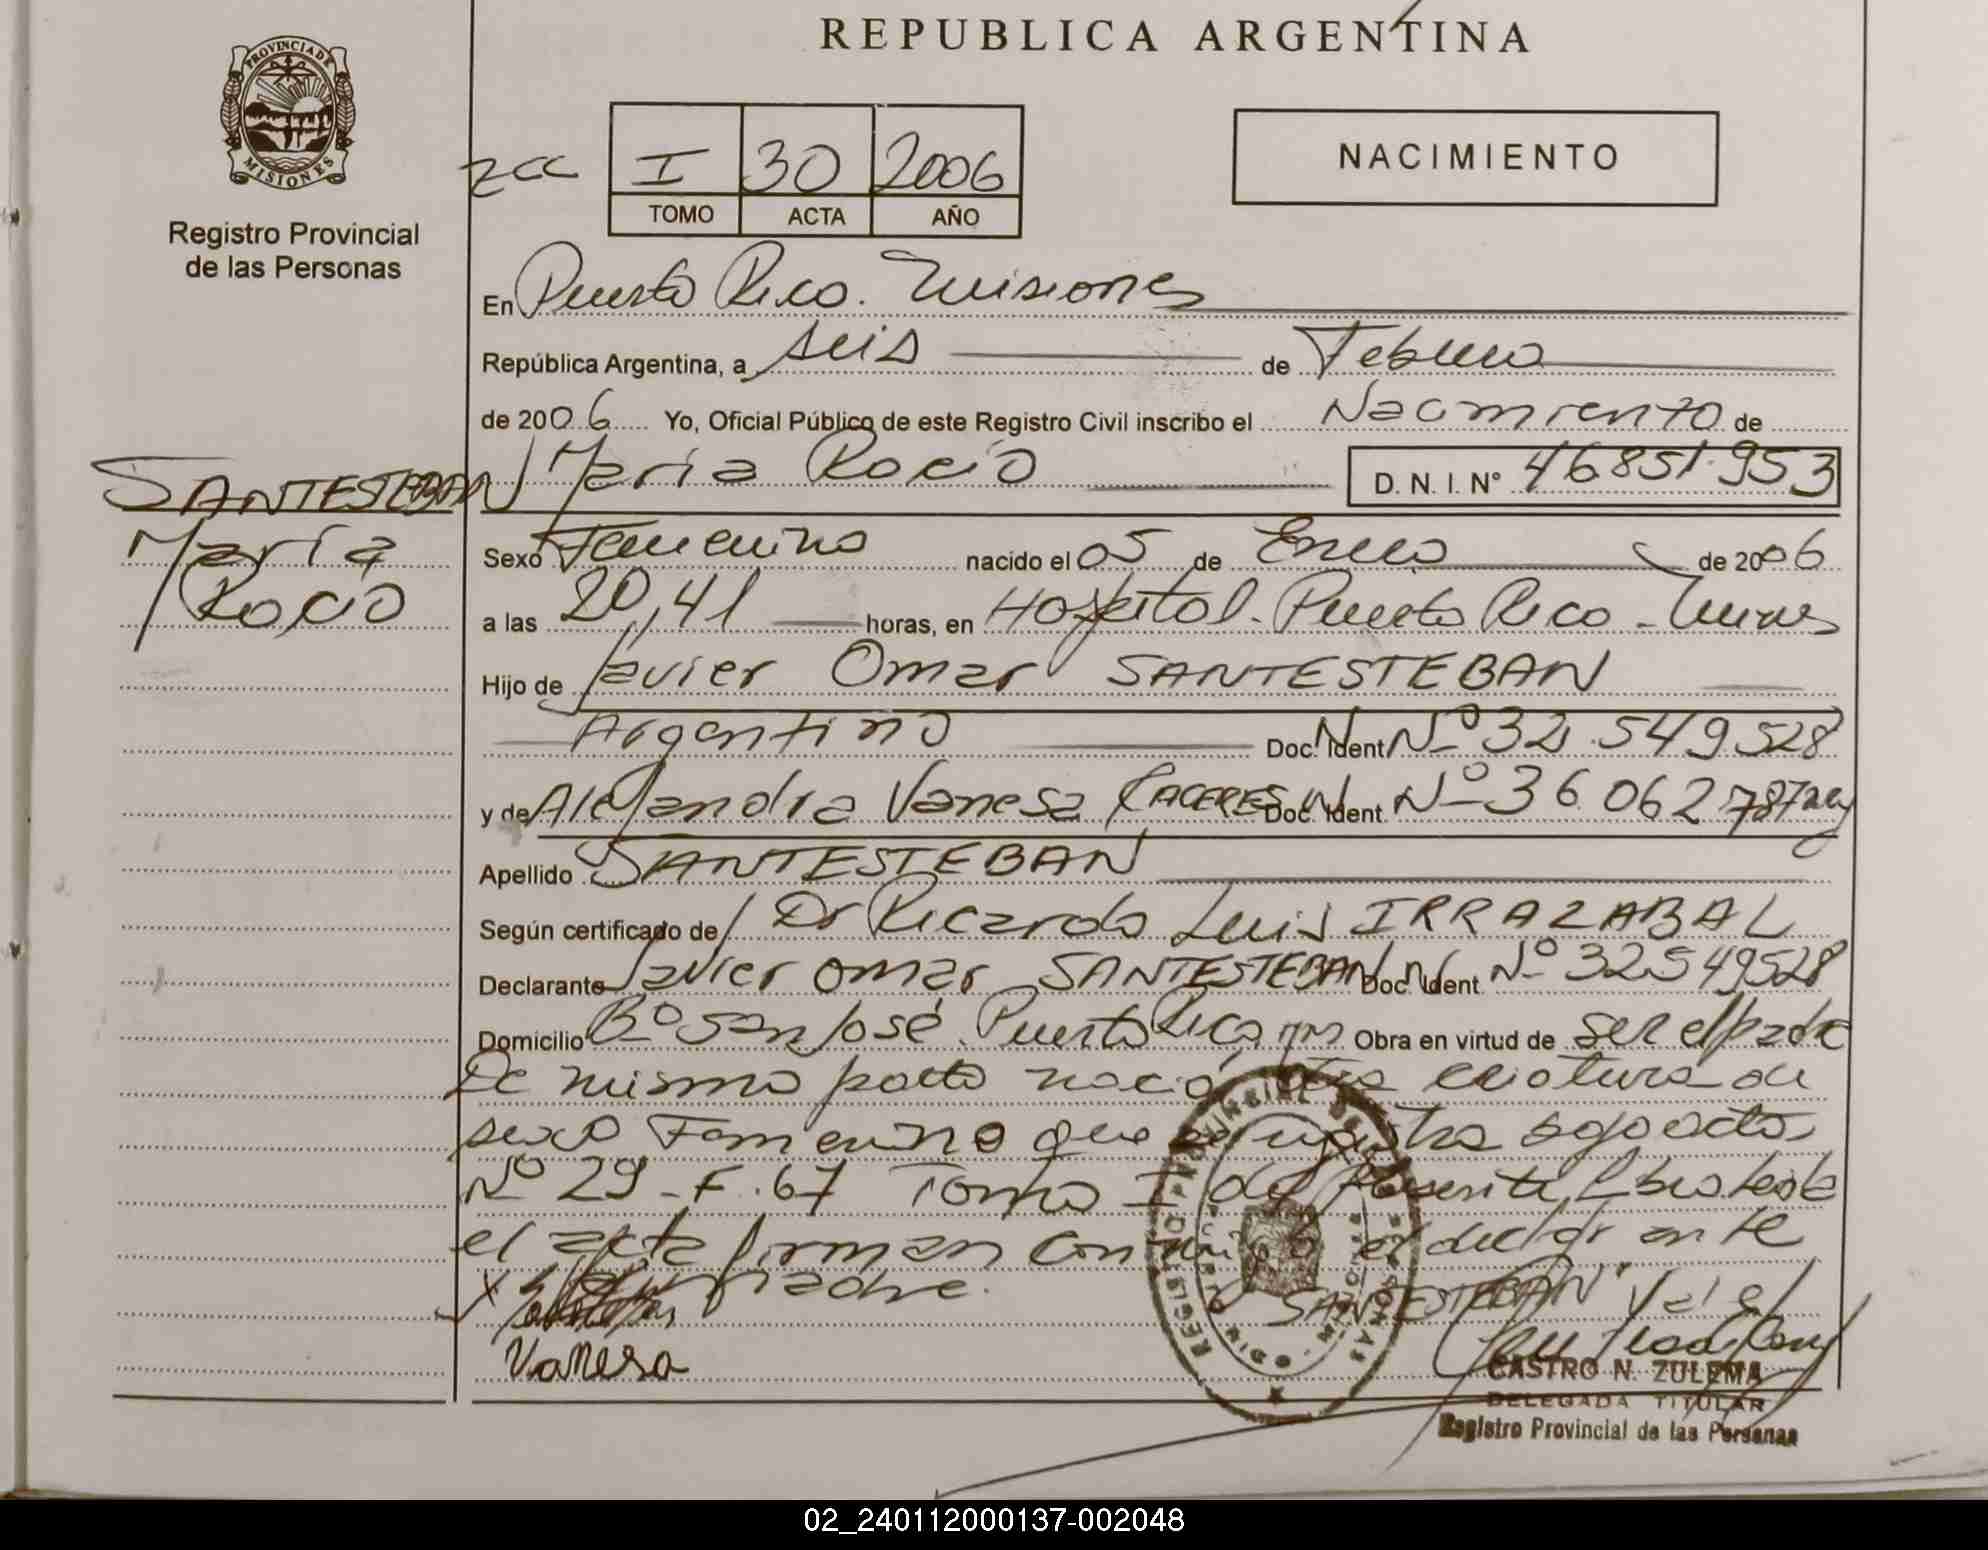 REPUBLICA ARGENTINA
PROVINCIA DE
MISIONES
Registro Provincial
de las Personas
I 30 2006
TOMO ACTA AÑO
NACIMIENTO
En Puerto Rico. Misiones
República Argentina, a seis de Febrero
de 2006 Yo, Oficial Público de este Registro Civil inscribo el Nacimiento de
María Rocío D. N. I. N° 46851.953
SANTESTEBAN
María
Rocío
Sexo Femenino nacido el 05 de Enero de 2006
a las 20,41 horas, en Hospital. Puerto Rico - Mnes
Hijo de Javier Omar SANTESTEBAN
Argentino Doc. Ident Nº 32.549528
y de Alejandra Vanesa CACERES Doc. Ident Nº 36 062 787
Apellido SANTESTEBAN
Según certificado de Dr Ricardo Luis IRRAZABAL
Declarante Javier Omar SANTESTEBAN Doc. Ident Nº 32549528
Domicilio Bº San José Puerto Rico Obra en virtud de ser el padre
De mismo parto nació otra criatura de
sexo Femenino que se registra bajo acta
Nº 29 - F. 67 Tomo I del presente libro leída
el acta firman conmigo el declarante
madre.
SANTESTEBAN
Vanesa
CASTRO N. ZULEMA
DELEGADA TITULAR
Registro Provincial de las Personas
02_240112000137-002048